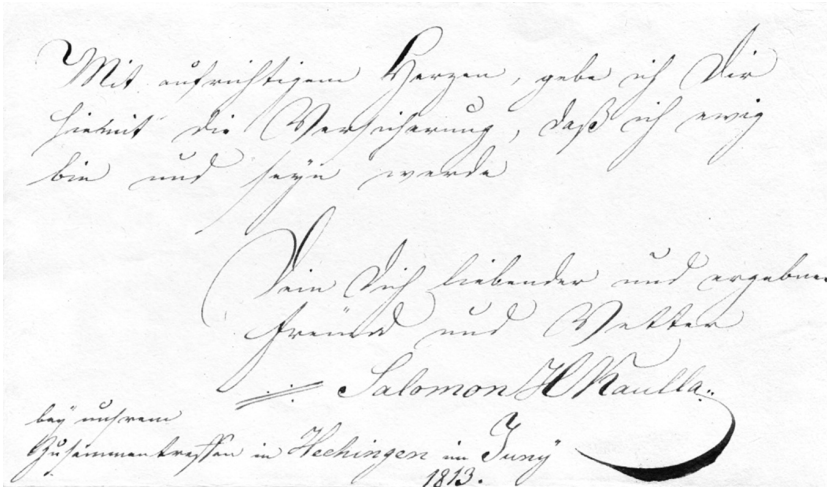 Mit aufrichtigem Herzen, gebe ich Dir
hiemit die Versicherung, daß ich ewig
bin und seyn werde
Dein Dich liebender und ergebner
Freünd und Vetter
Salomon H Kaulla
bey unsrem
Zusammentreffen in Hechingen im Juny
1813.